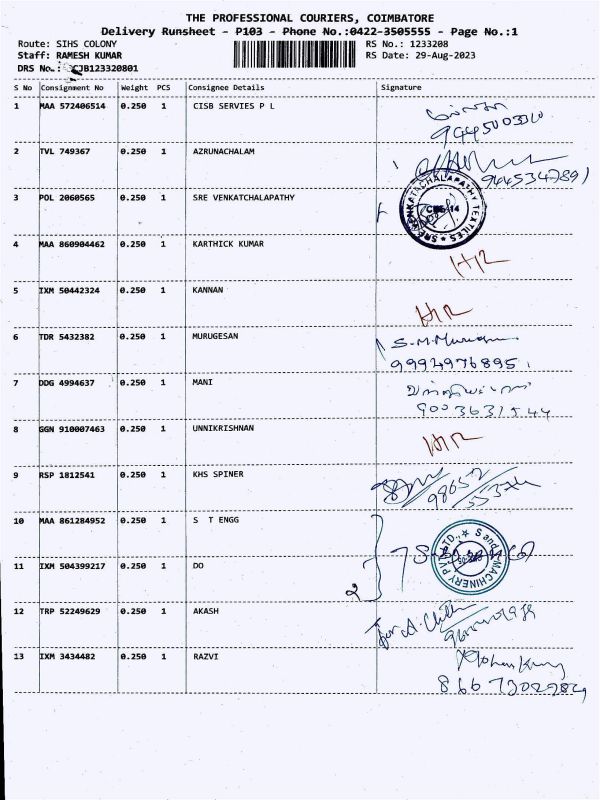 THE PROFESSIONAL COURIERS, COIMBATORE
Delivery Runsheet - P103 - Phone No.:0422-3505555 - Page No.:1
Route: SIHS COLONY RS No.: 1233208
Staff: RAMESH KUMAR RS Date: 29-Aug-2023
DRS No.: CJB123320801
S No Consignment No Weight PCS Consignee Details Signature
1 MAA 572406514 0.250 1 CISB SERVIES P L
2 TVL 749367 0.250 1 AZRUNACHALAM
3 POL 2060565 0.250 1 SRE VENKATCHALAPATHY
SRE VENKATACHALAPATHY TEXTILES
4 MAA 860904462 0.250 1 KARTHICK KUMAR
5 IXM 50442324 0.250 1 KANNAN
6 TDR 5432382 0.250 1 MURUGESAN
9994976895
7 DDG 4994637 0.250 1 MANI
8 GGN 910007463 0.250 1 UNNIKRISHNAN
9 RSP 1812541 0.250 1 KHS SPINER
10 MAA 861284952 0.250 1 S T ENGG
MACHINERY
11 IXM 504399217 0.250 1 DO
2
12 TRP 52249629 0.250 1 AKASH
13 IXM 3434482 0.250 1 RAZVI